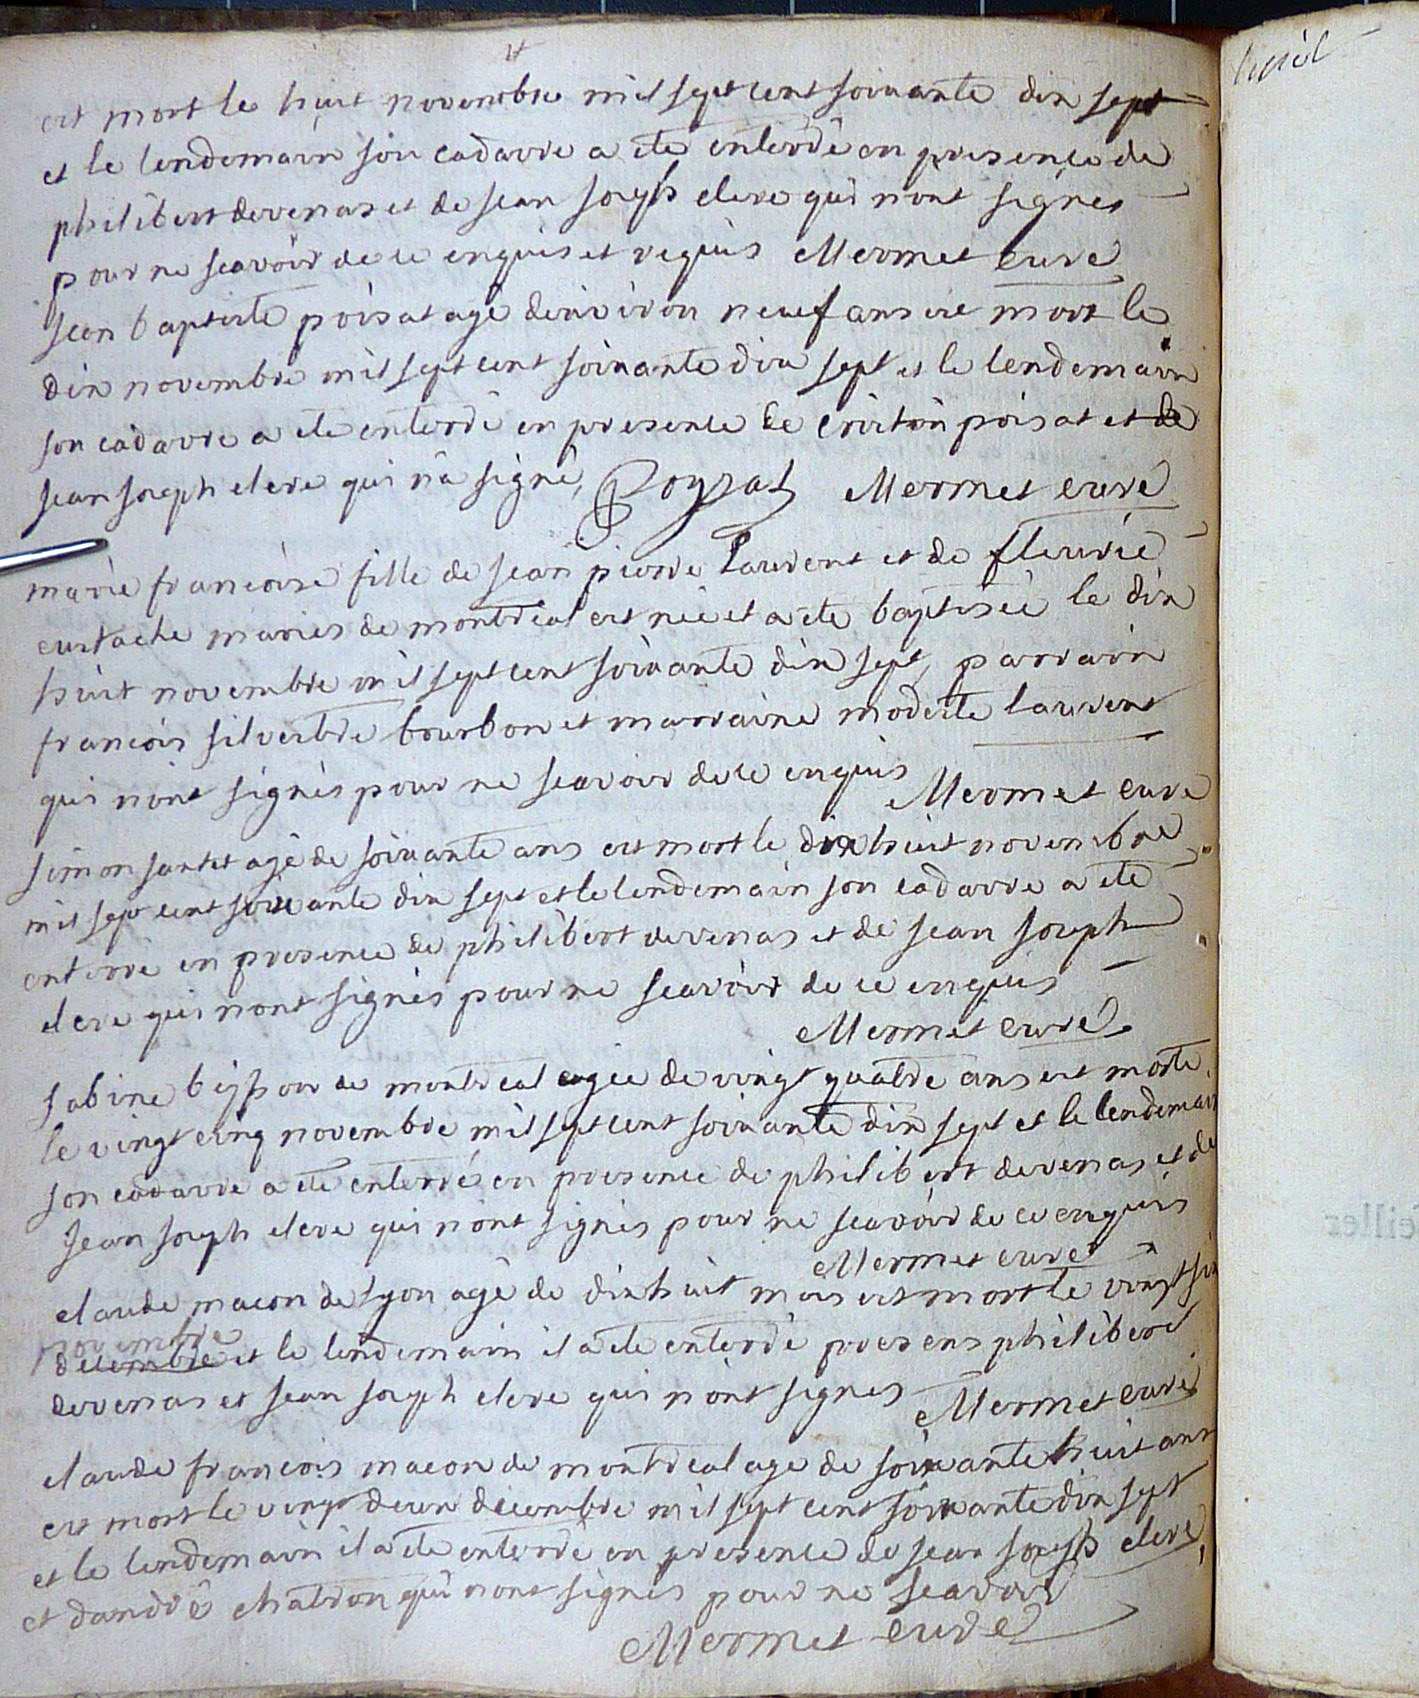 est mort le huit novembre mil sept cent soixante dix sept
et le lendemain son cadavre a ete enterré en presence de
philibert devenas et de jean joseph clere qui n'ont signés
pour ne scavoir de ce enquis et requis Mermet curé
jean baptiste poisat agé d'environ neuf ans est mort le
dix novembre mil sept cent soixante dix sept et le lendemain
son cadavre a ete enterré en presence de poisat et de
jean joseph clere qui n'a signé, Poyzat Mermet curé
marie francoise fille de jean pierre laurent et de fleurie
eustache mariés de montreal est née et a ete baptisée le dix
huit novembre mil sept cent soixante dix sept, parrain
francois silvestre bourbon et marraine modeste laurent
qui n'ont signés pour ne scavoir de ce enquis Mermet curé
simon santet agé de soixante ans est mort le dix huit novembre
mil sept cent soixante dix sept et le lendemain son cadavre a ete
enterré en presence de philibert devenas et de jean joseph
clere qui n'ont signés pour ne scavoir de ce enquis
Mermet curé
sabine de montreal agée de vingt quatre ans est morte
le vingt cinq novembre mil sept cent soixante dix sept et le lendemain
son cadavre a ete enterré en presence de philibert devenas et de
jean joseph clere qui n'ont signés pour ne scavoir de ce enquis
Mermet curé
claude macon de lyon agé de dix huit mois est mort le vingt six
novembre
decembre et le lendemain il a ete enterré presens philibert
devenas et jean joseph clere qui n'ont signés Mermet curé
claude francois macon de montreal agé de soixante huit ans
est mort le vingt deux decembre mil sept cent soixante dix sept
et le lendemain il a ete enterré en presence de jean joseph clere
et d'andré chatron qui n'ont signés pour ne scavoir
Mermet curé